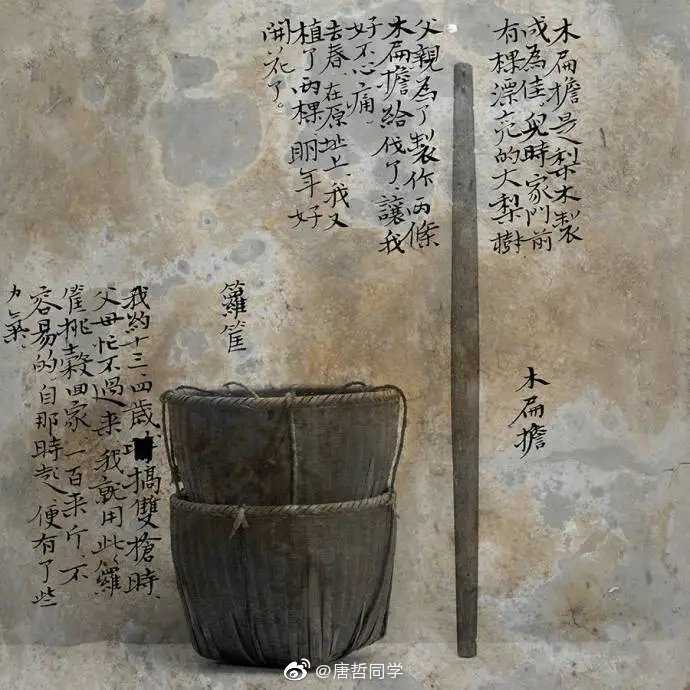 木扁擔是梨木製
成為佳,兒時家門前
有棵漂亮的大梨樹
父親為了製作两條
木扁擔給伐了,讓我
好不心痛,
去春、在原址上、我又
植了两棵明年好
開花了。
木扁擔
籮筐
我約十三四歲搞雙搶時
父母忙不過来,我就用此籮
筐挑穀回家,一百来斤,不
容易的,自那時起,便有了些
力氣,
@唐哲同学